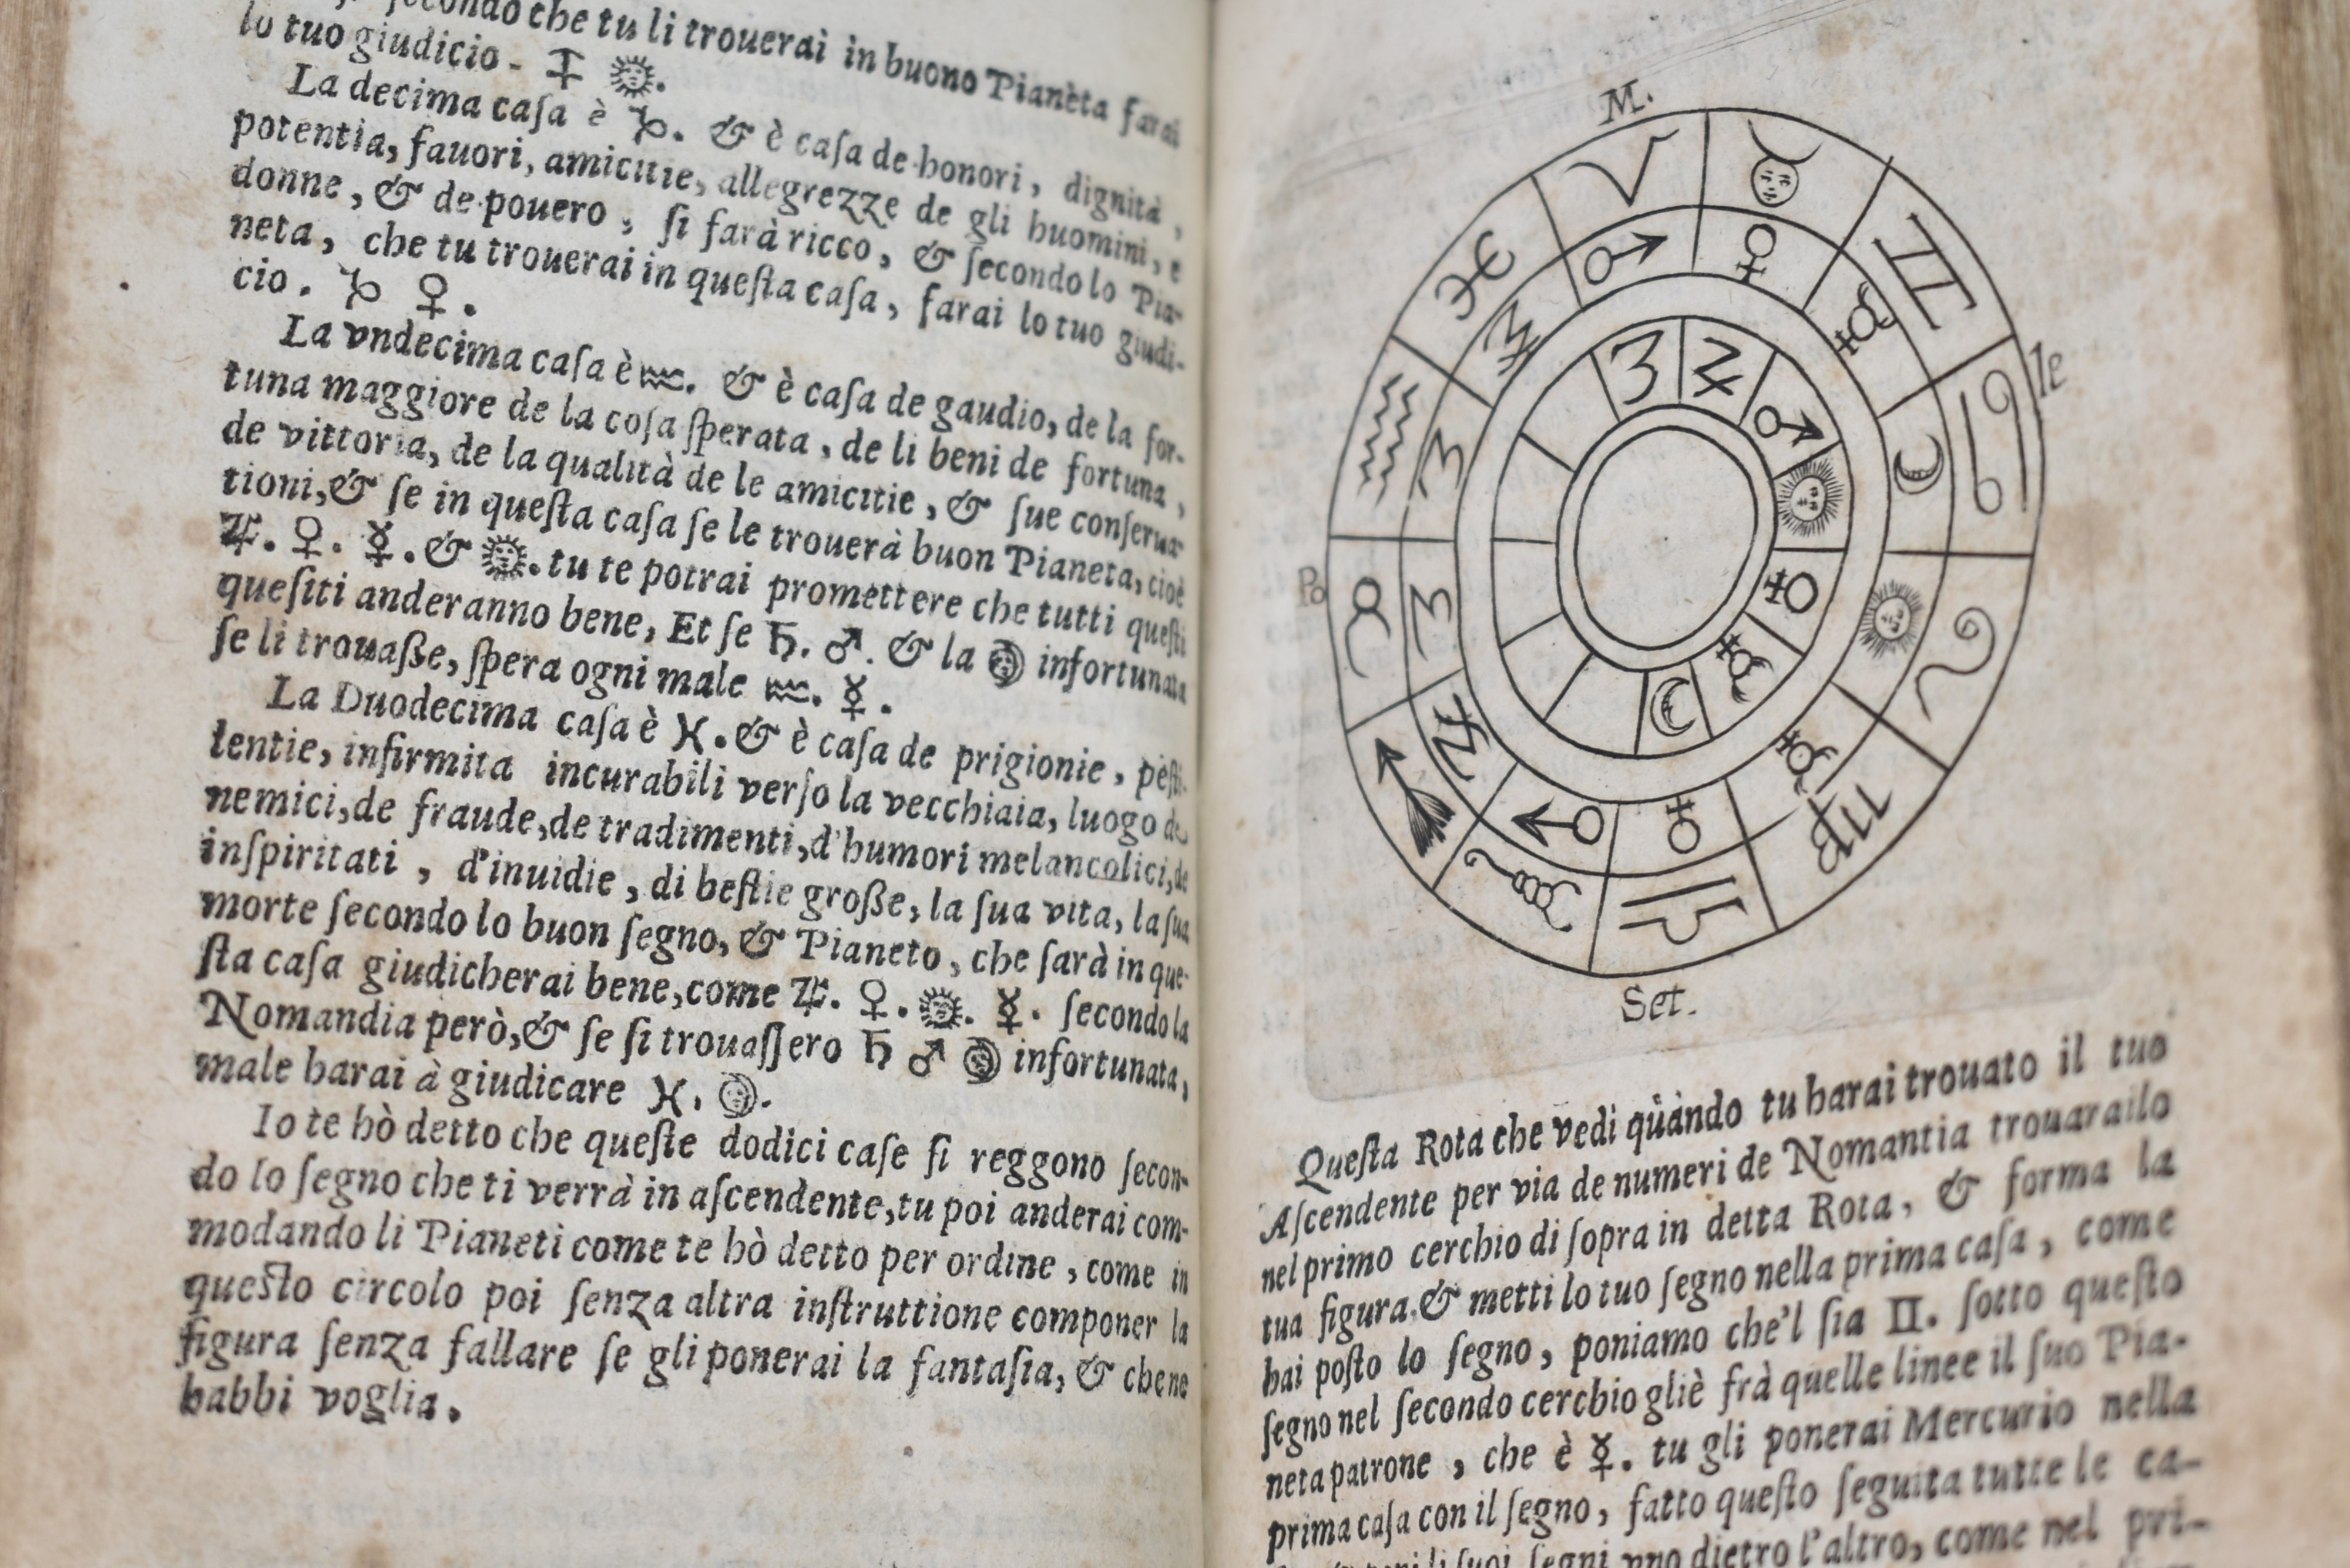 secondo che tu li trouerai in buono Pianèta farai
lo tuo giudicio - ♐ ☉.
La decima caſa è ♑. & è caſa de honori, dignità,
potentia, fauori, amicitie, allegrezze de gli huomini, e
donne, & de pouero, ſi farà ricco, & ſecondo lo Pia-
neta, che tu trouerai in queſta caſa, farai lo tuo giudi-
cio. ♑ ♀.
La vndecima caſa è ♒. & è caſa de gaudio, de la for-
tuna maggiore de la coſa ſperata, de li beni de fortuna,
de vittoria, de la qualità de le amicitie, & ſue conſerua
tioni,& ſe in queſta caſa ſe le trouerà buon Pianeta, cioè
♃. ♀. ☿. & ☉. tu te potrai promettere che tutti queſti
queſiti anderanno bene, Et ſe ♄. ♂. & la ☽ infortunata
ſe li trouaße, ſpera ogni male ♒. ☿.
La Duodecima caſa è ♓. & è caſa de prigionie, peſti
lentie, infirmita incurabili verſo la vecchiaia, luogo de
nemici,de fraude,de tradimenti,d'humori melancolici,de
inſpiritati, d'inuidie, di beſtie große, la ſua vita, la ſua
morte ſecondo lo buon ſegno, & Pianeto, che ſarà in que-
ſta caſa giudicherai bene,come ♃. ♀. ☉. ☿. ſecondo la
Nomandia però,& ſe ſi trouaſſero ♄ ♂ ☽ infortunata,
male harai à giudicare ♓. ☽.
Io te hò detto che queſte dodici caſe ſi reggono ſecon-
do lo ſegno che ti verrà in aſcendente,tu poi anderai com-
modando li Pianeti come te hò detto per ordine, come in
queſto circolo poi ſenza altra inſtruttione componer la
figura ſenza fallare ſe gli ponerai la fantaſia, & che ne
habbi voglia.
M.
♓ ♈ ♉ ♊
♃ ♂ ♀ ☿
le
♒ ♄ ☽ ♋
♄ ♃ ♂ ☉
Po
♑ ♄ ☉ ♌
☽ ☿ ♀
♐ ♃ ♂ ♀ ☿ ♍
♏ ♎
Set.
Queſta Rota che vedi quàndo tu harai trouato il tuo
Aſcendente per via de numeri de Nomantia trouarailo
nel primo cerchio di ſopra in detta Rota, & forma la
tua figura.& metti lo tuo ſegno nella prima caſa, come
hai poſto lo ſegno, poniamo che'l ſia ♊. ſotto queſto
ſegno nel ſecondo cerchio gliè frà quelle linee il ſuo Pia-
neta patrone, che è ☿. tu gli ponerai Mercurio nella
prima caſa con il ſegno, fatto queſto ſeguita tutte le ca-
li ſuoi ſegni vno dietro l'altro, come nel pri-